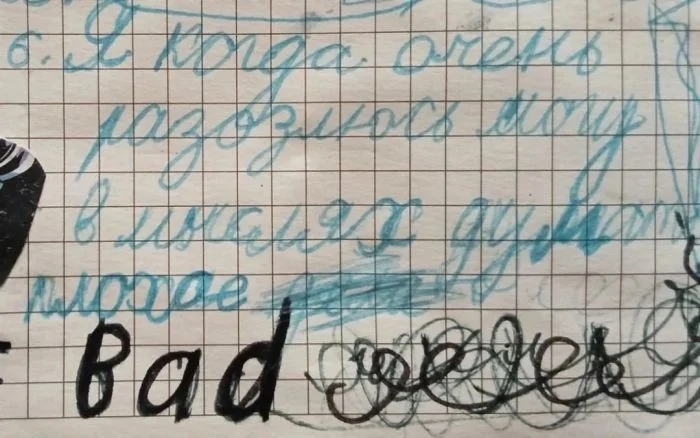 6. Я когда очень
разозлюсь могу
в мыслях думат
плохое
Bad